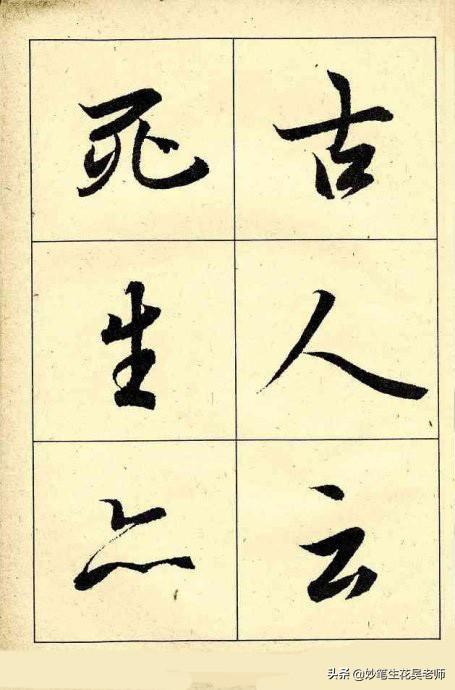 古人云
死生亦
头条 @妙笔生花吴老师